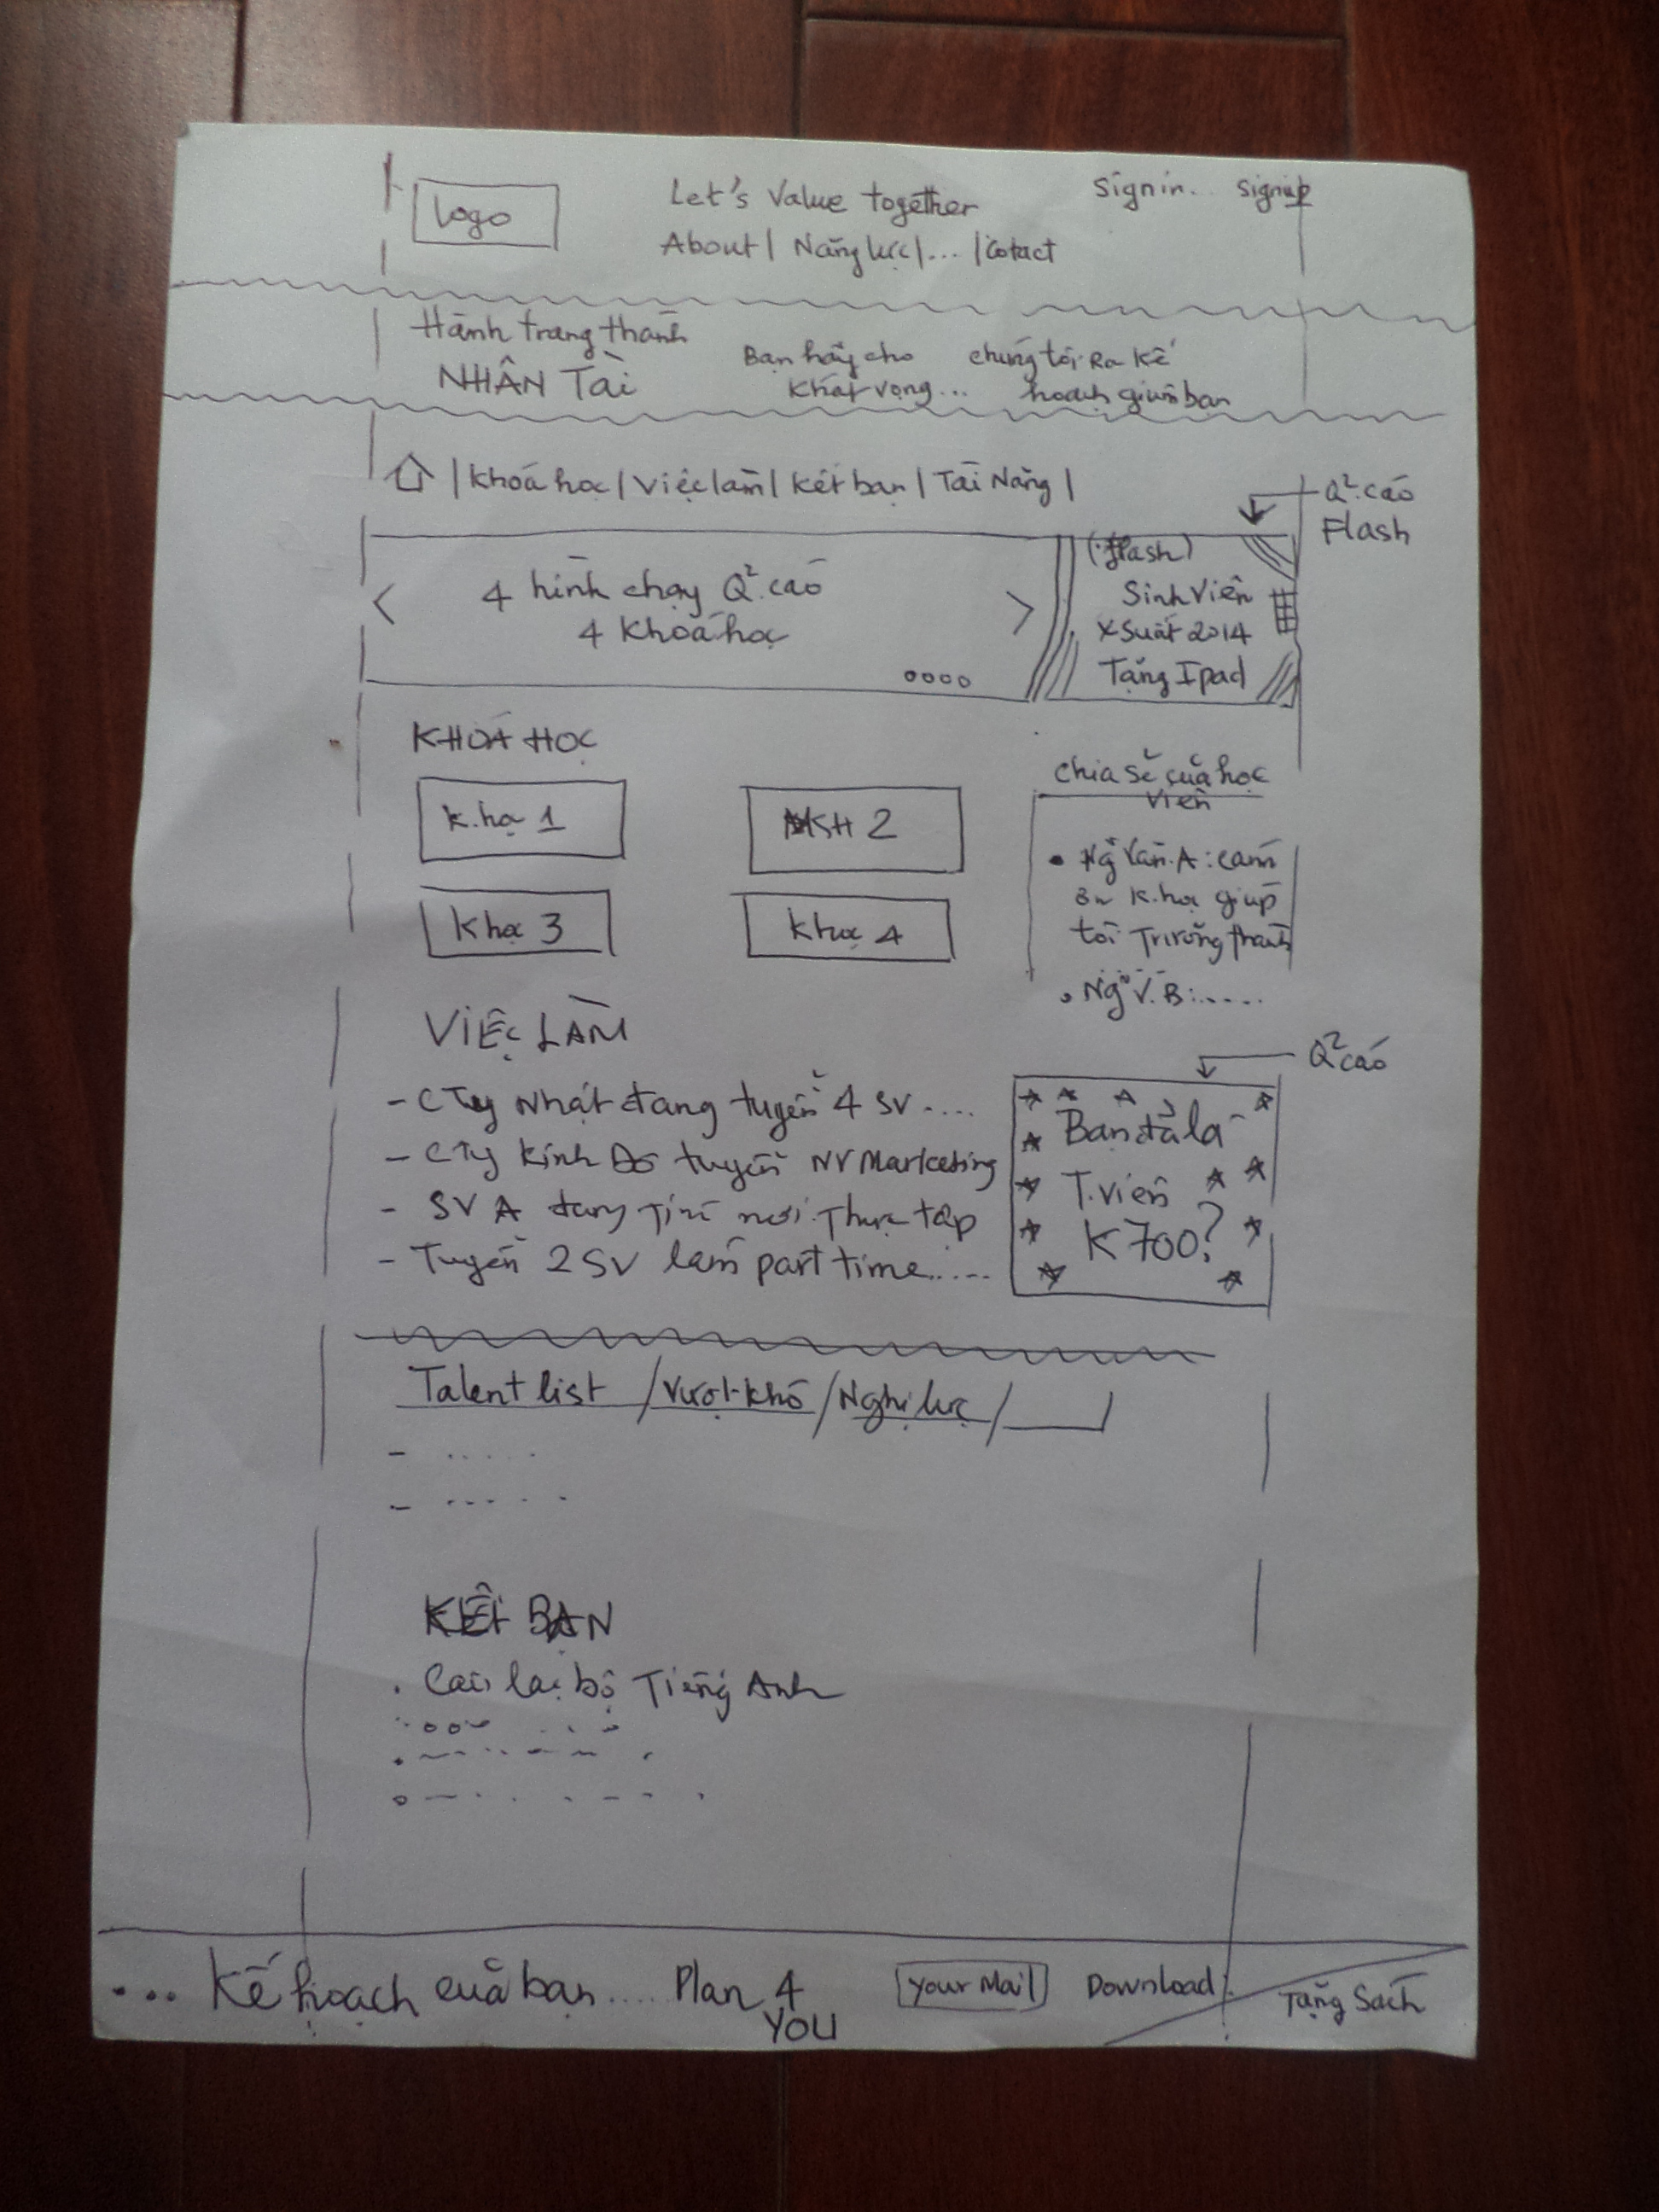 Logo
Let's Value together
Sign in.. Sign up
About | Năng lực | ... | Cotact
Hành trang thành
NHÂN TÀI
Bạn hãy cho
khát vọng...
chúng tôi Ra kế
hoạch giúp bạn
| Khoá học | Việc làm | Kết bạn | Tài Năng |
Q².cáo
Flash
4 hình chạy Q².cáo
4 Khoá học
(flash)
Sinh Viên
X Suất 2014
Tặng Ipad
KHOÁ HỌC
K.học 1
KH 2
Khọc 3
Khọc 4
Chia sẻ của học
viên
• Ng Văn.A: cám
ơn K.học giúp
tôi Trưởng thành
• Ng V.B:.....
VIỆC LÀM
- CTy Nhật đang tuyển 4 SV....
- CTy Kinh Đô tuyển NV Marketing
- SV A đang Tìm nơi Thực tập
- Tuyển 2 SV làm part time.....
Q²cáo
Bạn đã là
T.viên
K700?
Talent list / Vượt khó / Nghị lực /
- .....
- .....
KẾT BẠN
. Câu lạc bộ Tiếng Anh
... Kế hoạch của bạn.... Plan 4
YOU
Your Mail
Download:
Tặng Sách